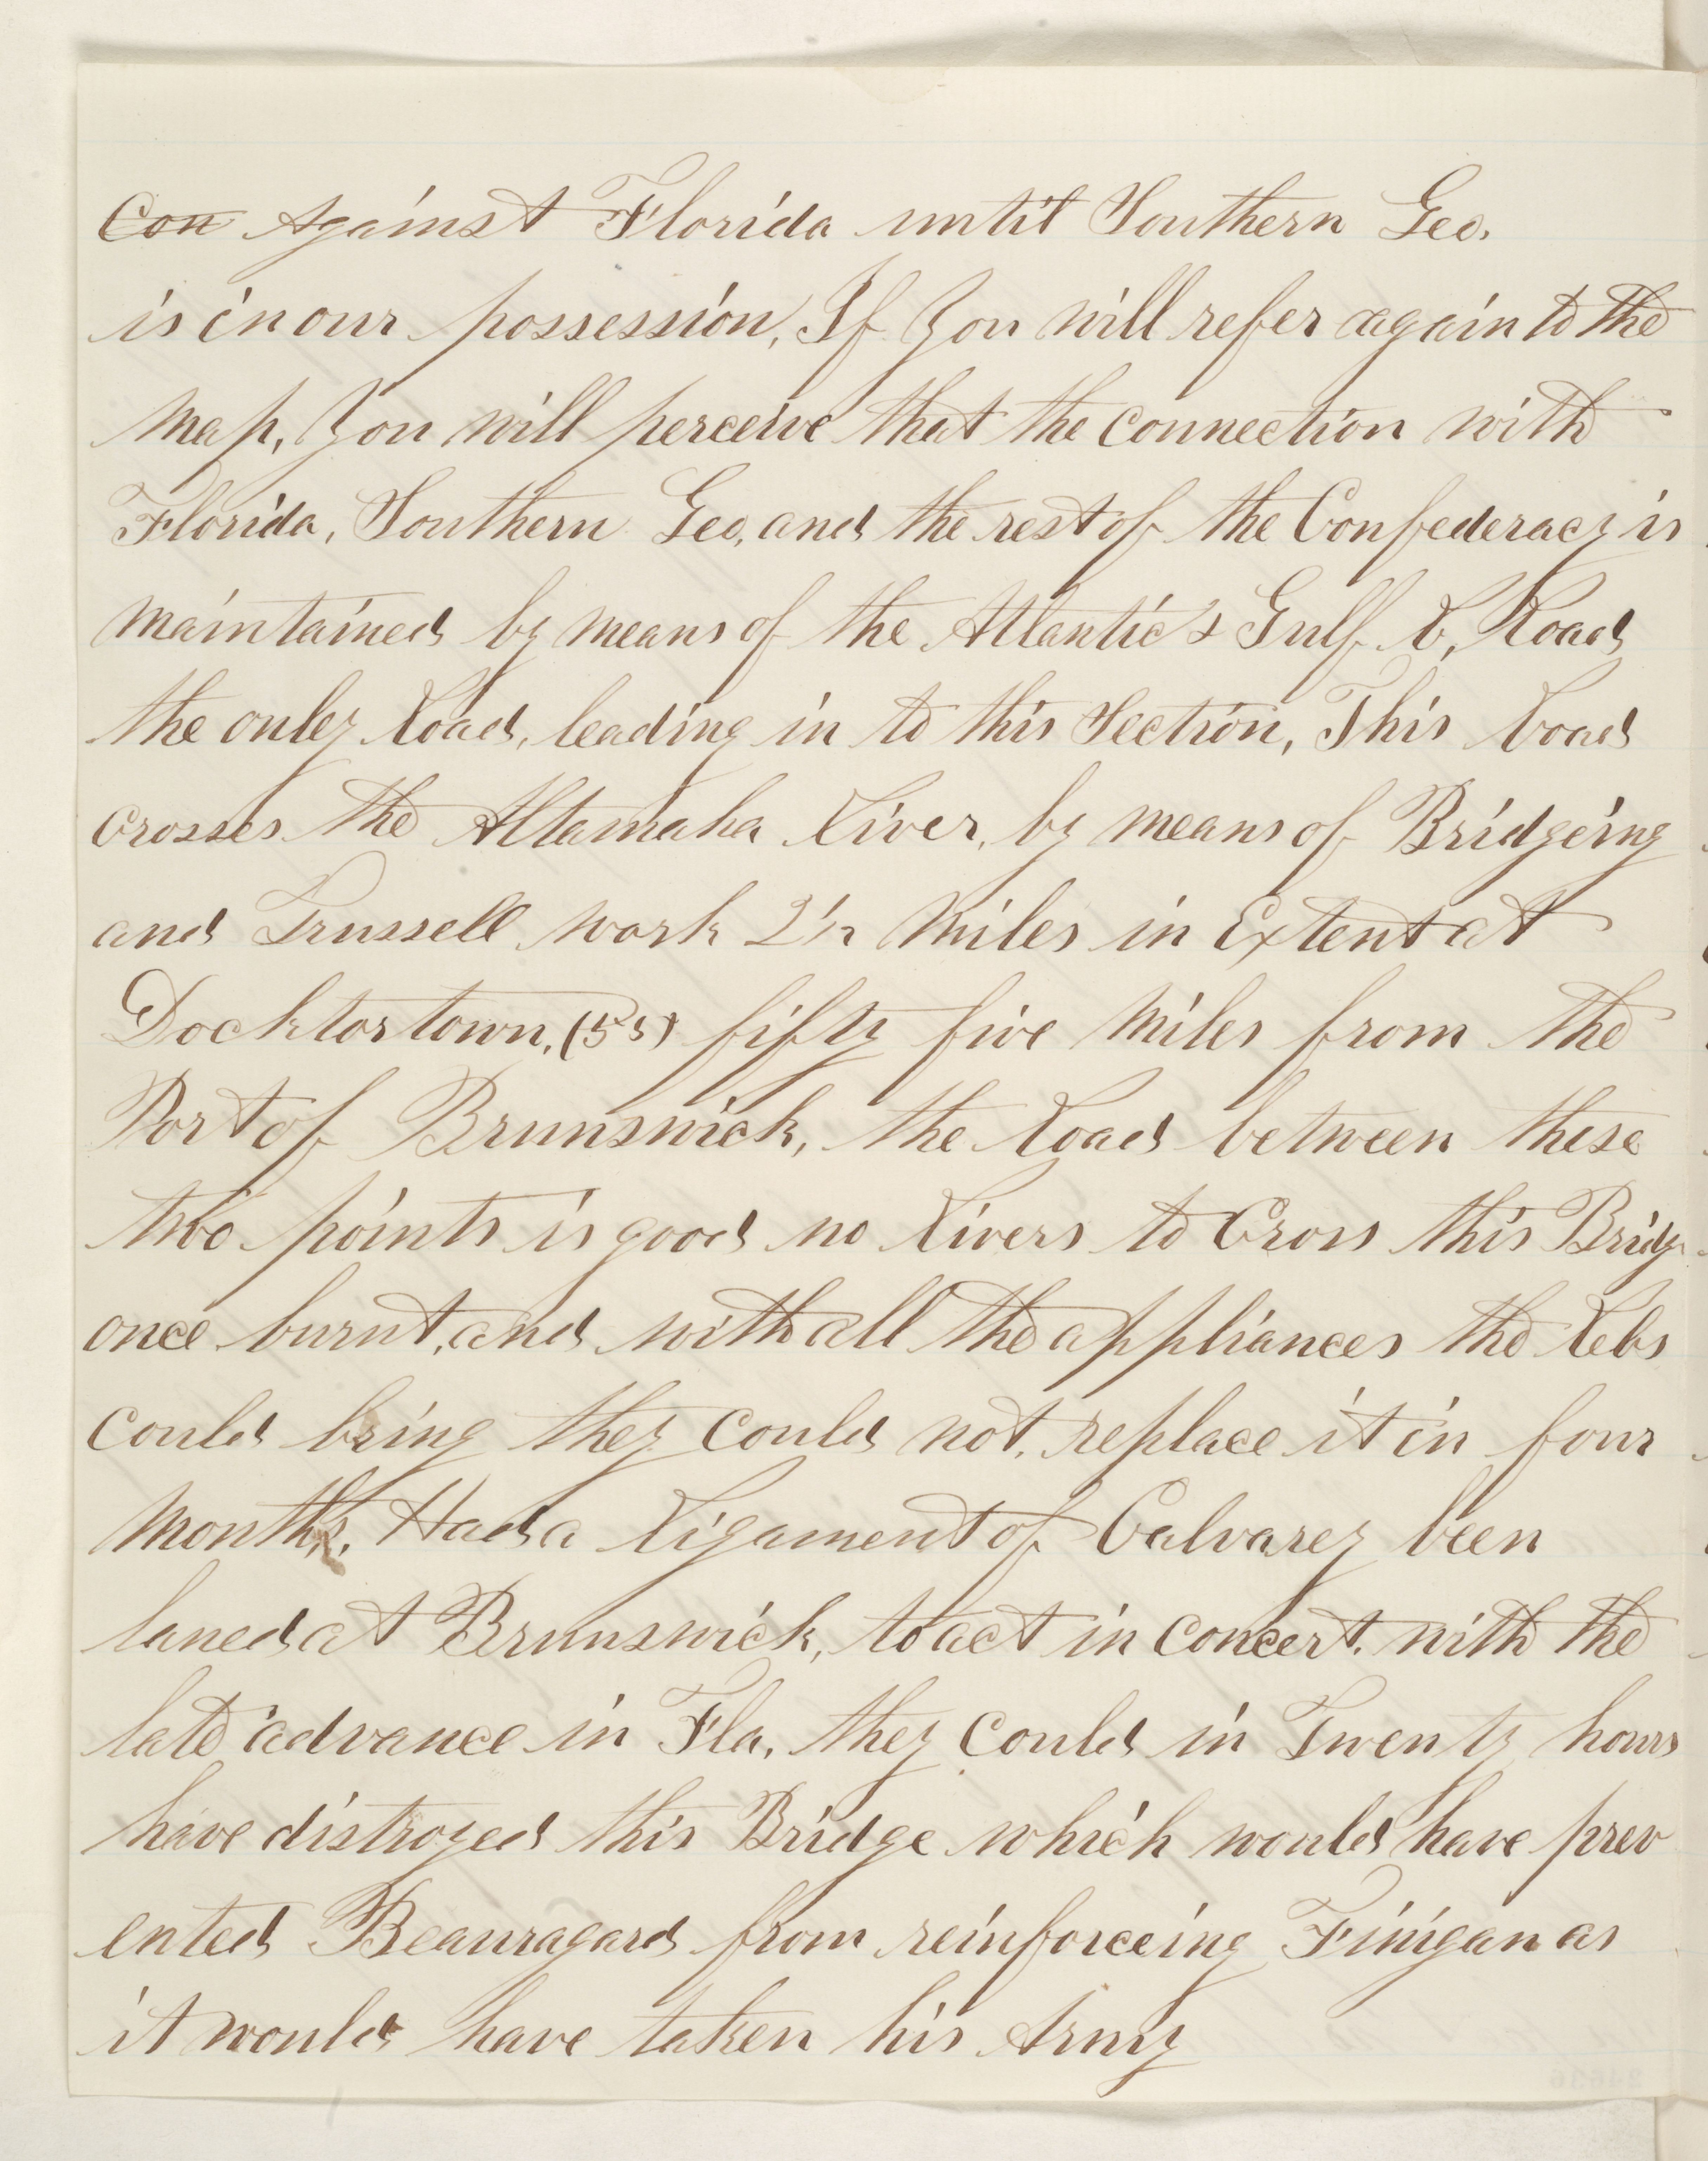 Con Against Florida until Southern Geo.
is in our possession, If you will refer again to the
map, you will perceive that the connection with
Florida, Southern Geo, and the rest of the Confederacy is
maintained by means of the Atlantic & Gulf R, Road
the only Road, leading in to this Section, This Road
crosses the Altamaha River, by means of Bridgeing
and Trussell work 2 1/2 miles in Extent at
Docktortown, (55) fifty five miles from the
Port of Brunswick, the Road between these
two points is good no Rivers to Cross this Bridge
once burnt, and with all the appliances the Rebs
could bring they could not, replace it in four
months, Had a Rigament of Calvarey been
laned at Brunswick, to act in concert, with the
late advance in Fla, they could in Twenty hours
have distroyed this Bridge which would have prev
ented Beauragard from reinforceing Finigan as
it would have taken his Army